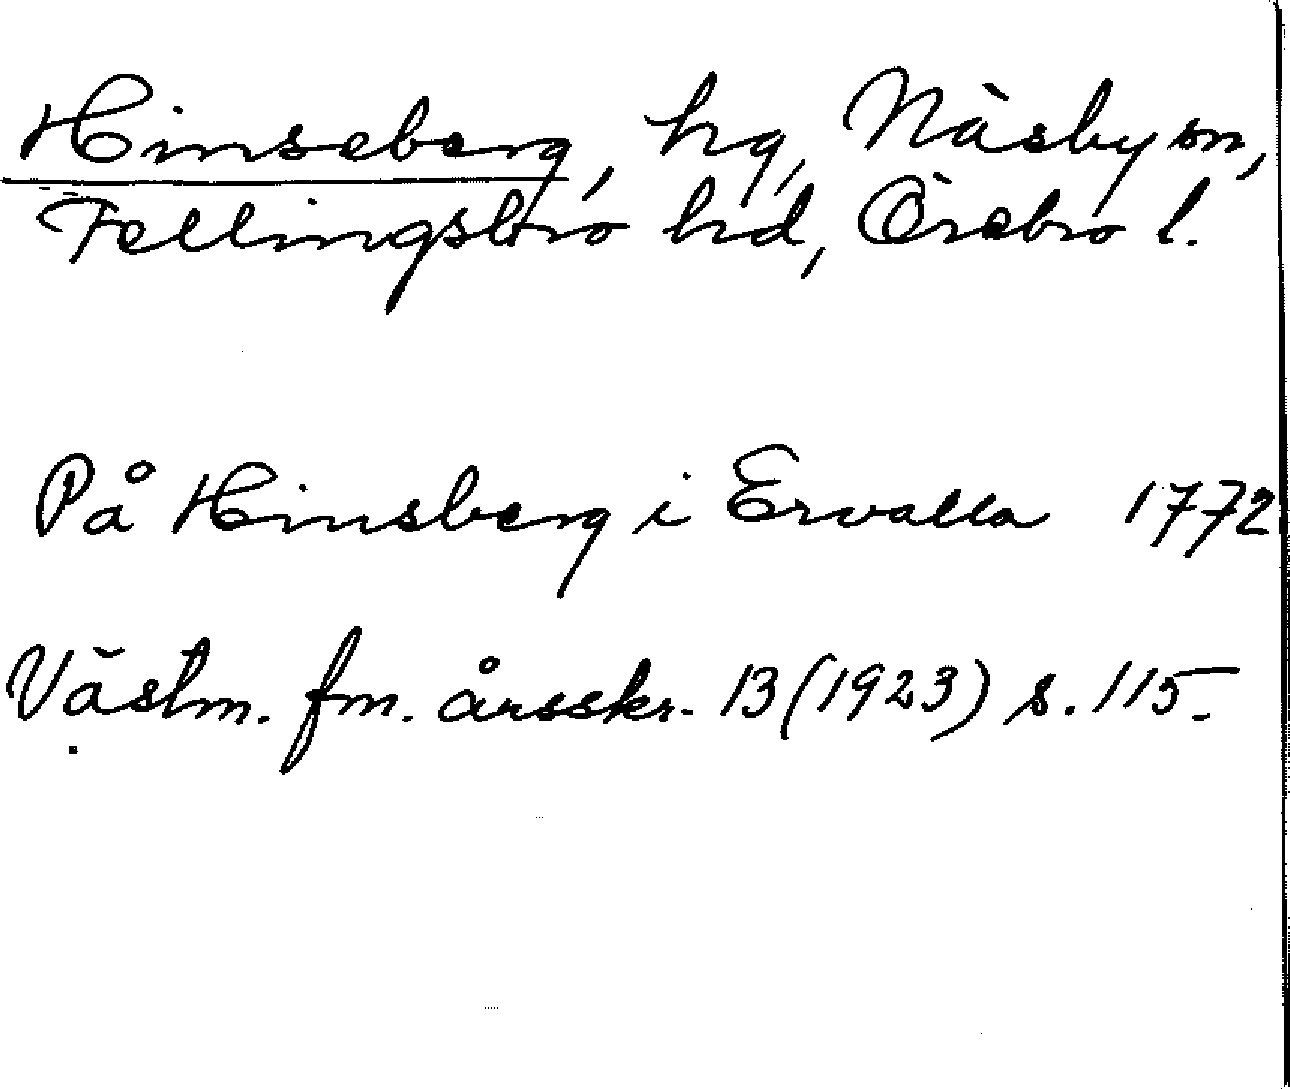 Hinseberg, hg, Näsby sn,
Fellingsbro hd, Örebro l.
På Hinsberg i Ervalla 1772
Västm. fm. årsskr. 13 (1923) s. 115.